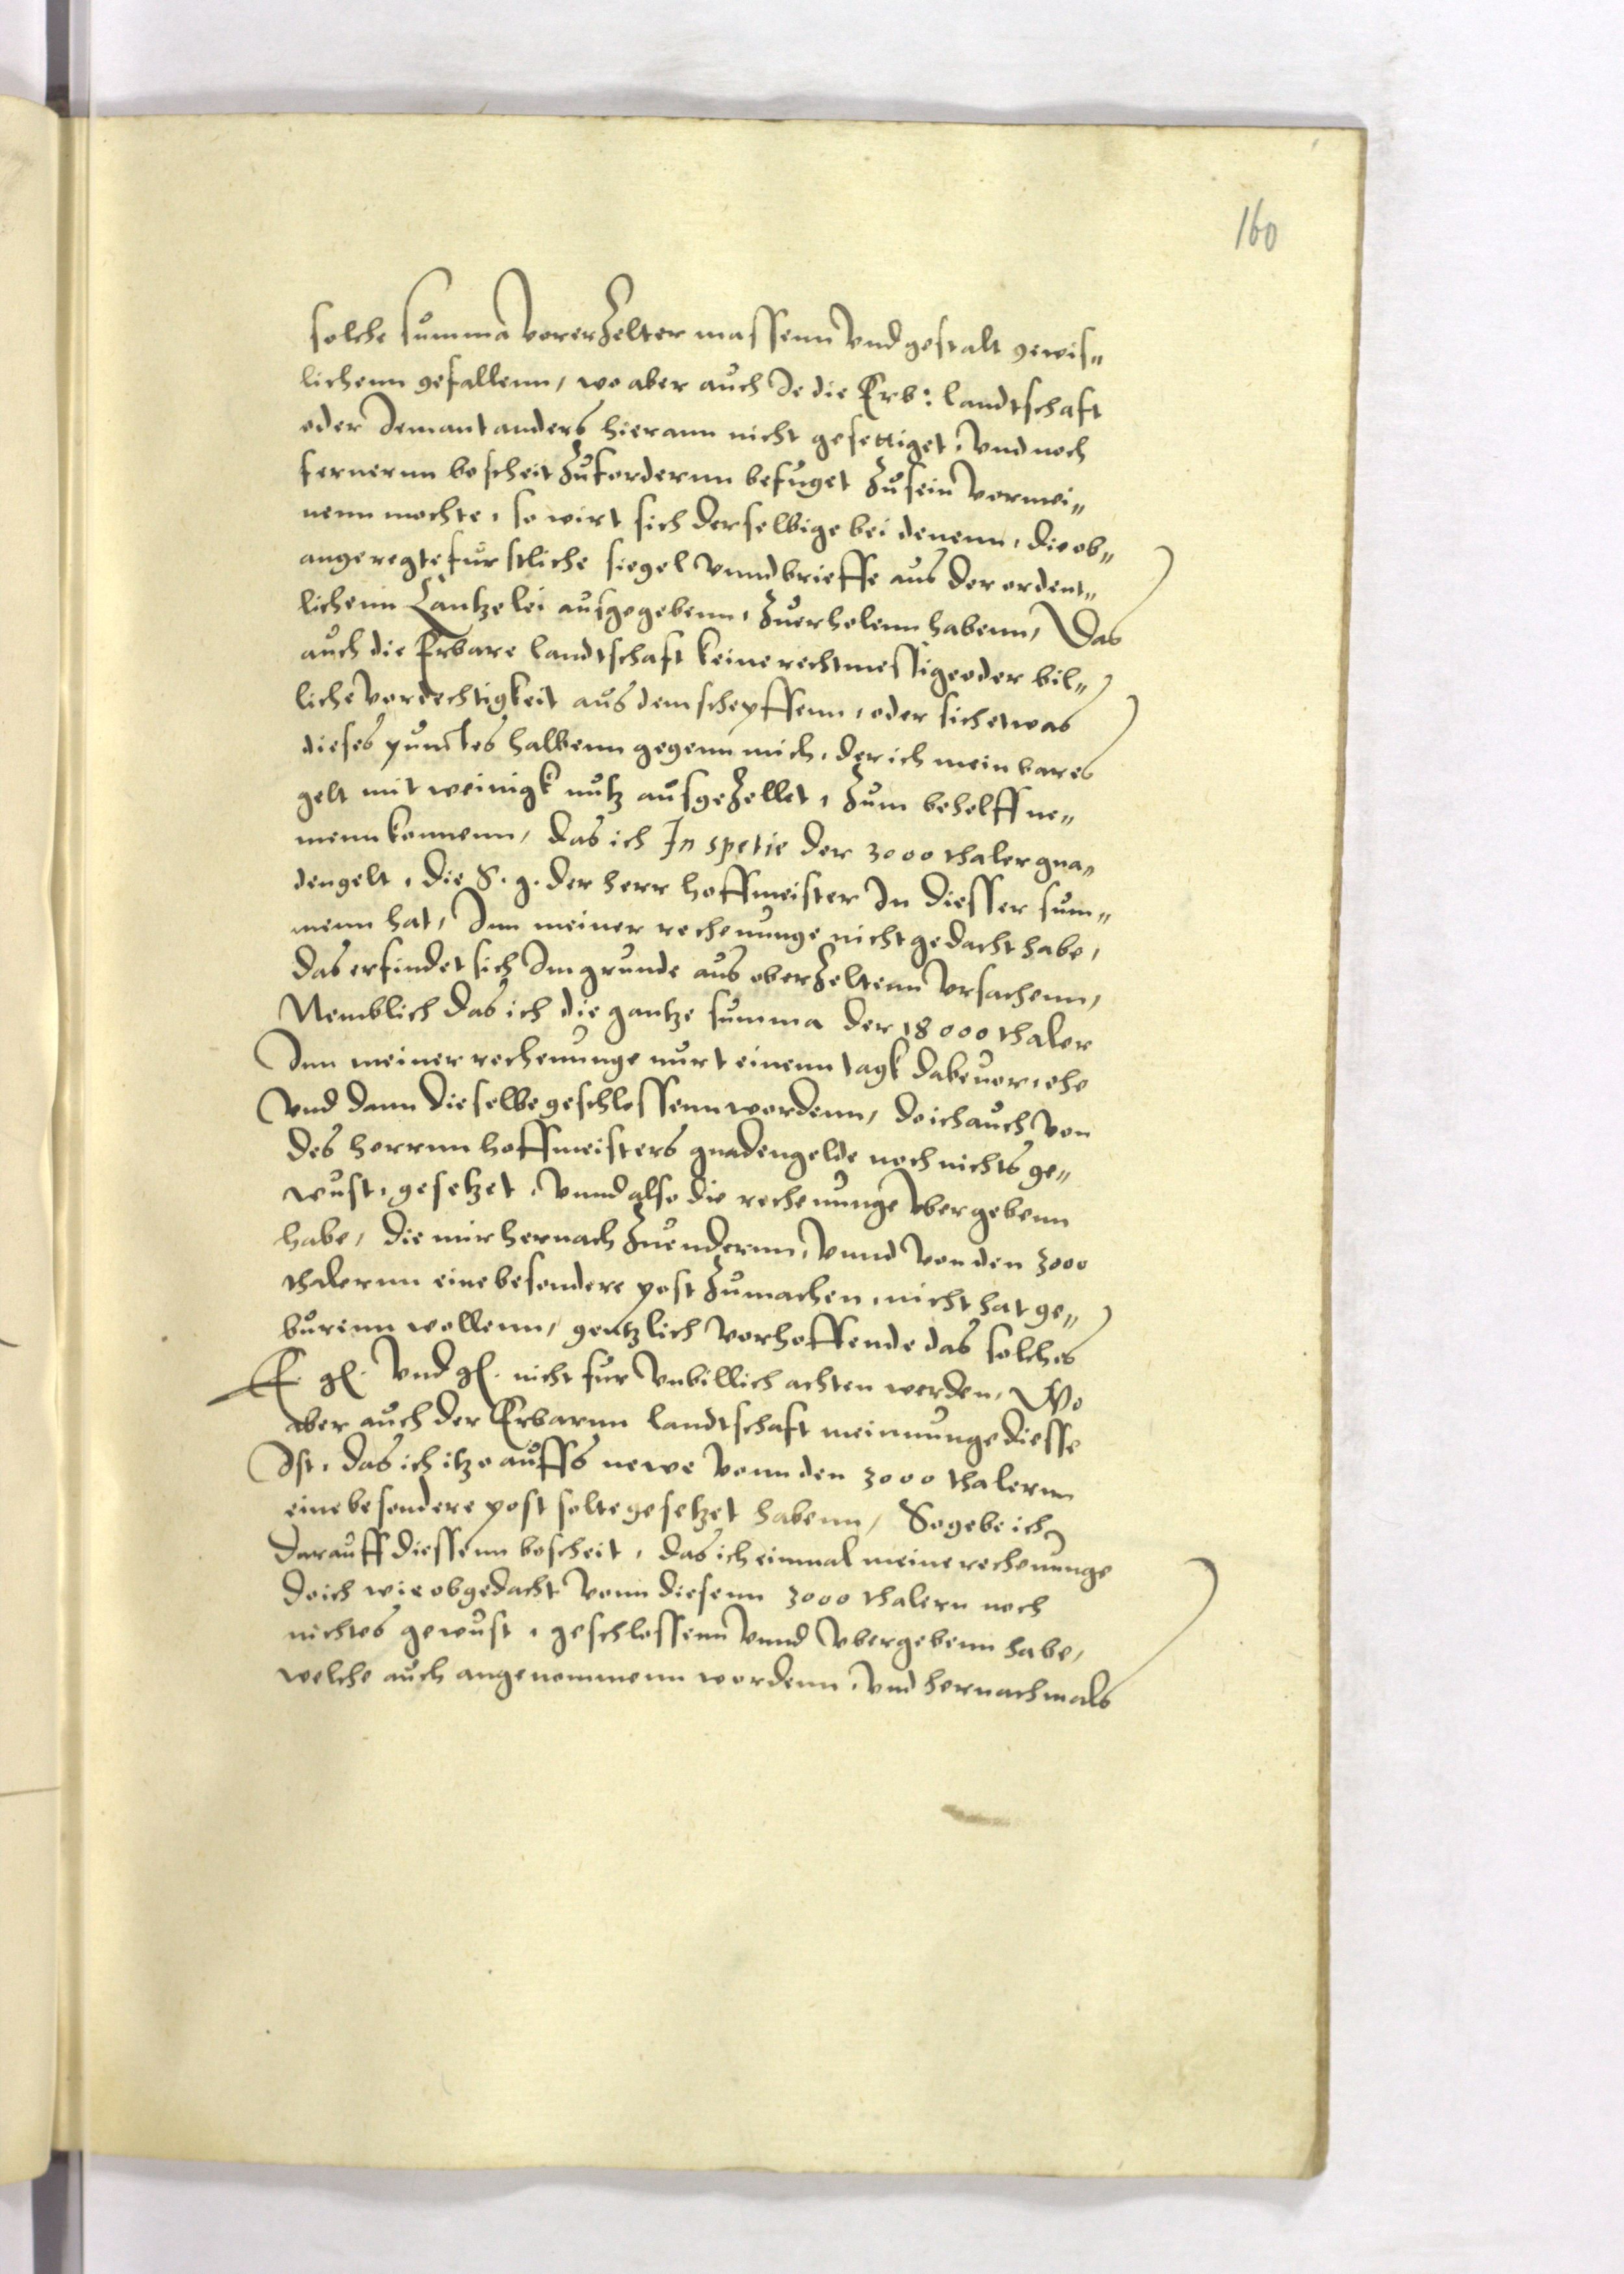 160
solche summa vorerzelter massenn vnd gestalt gewis„
lichenn gefallenn, wo aber auch Je die Erb: landtschaft
oder Jemant anders hierann nicht gesettiget, vnd noch
fernernn bescheit zufordernn befuget zu sein vormei„
nenn mochte, so wirt sich derselbige bei denenn, die ob„
angeregte furstliche siegel vnnd brieffe aus der ordent„
lichenn Cantzelei ausgegebenn, zuerholenn habenn, Das
auch die Erbare landtschaft keine rechtmessige oder bil„
liche vordechtigkeit aus dem schepffenn, oder sich etwas
dieses punctes halbenn gegenn mich, der ich mein bares
gelt mit weinigk nutz ausgezellet, zum behelff ne„
menn konnenn, das ich In spetie der 3000 thaler gna„
dengelt, die S. g. der herr hoffmeister In diesser sum„
menn hat, Inn meiner rechenunge nicht gedacht habe,
das erfindet sich Im grunde aus oberzeltenn vrsachenn,
Nemblich das ich die gantze summa der 18000 thaler
Inn meiner rechenunge nurt einenn tagk dabeuor, ehe
vnd dann dieselbe geschlossenn wordenn, do ich auch von
des herrnn hoffmeisters gnadengelde noch nichts ge„
wust, gesetzet, vnnd also die rechenunge vbergebenn
habe, die mir hernach zuendernn, vnnd von den 3000
thalernn eine besondere post zumachen, nicht hat ge„
burenn wollenn, gentzlich vorhoffende das solches
E. gl. vnd gl. nicht fur vnbillich achten werden, Wo
aber auch der Erbarnn landtschaft meinnunge diesse
Ist, das ich itzo auffs newe vonn den 3000 thalernn
eine besondere post solte gesetzet habenn, So gebe ich
darauff diessenn bescheit, das ich einmal meine rechenunge
do ich wie obgedacht vonn diesenn 3000 thalern noch
nichtes gewust, geschlossenn vnnd vbergebenn habe,
welche auch angenommenn wordenn, vnd hernachmals